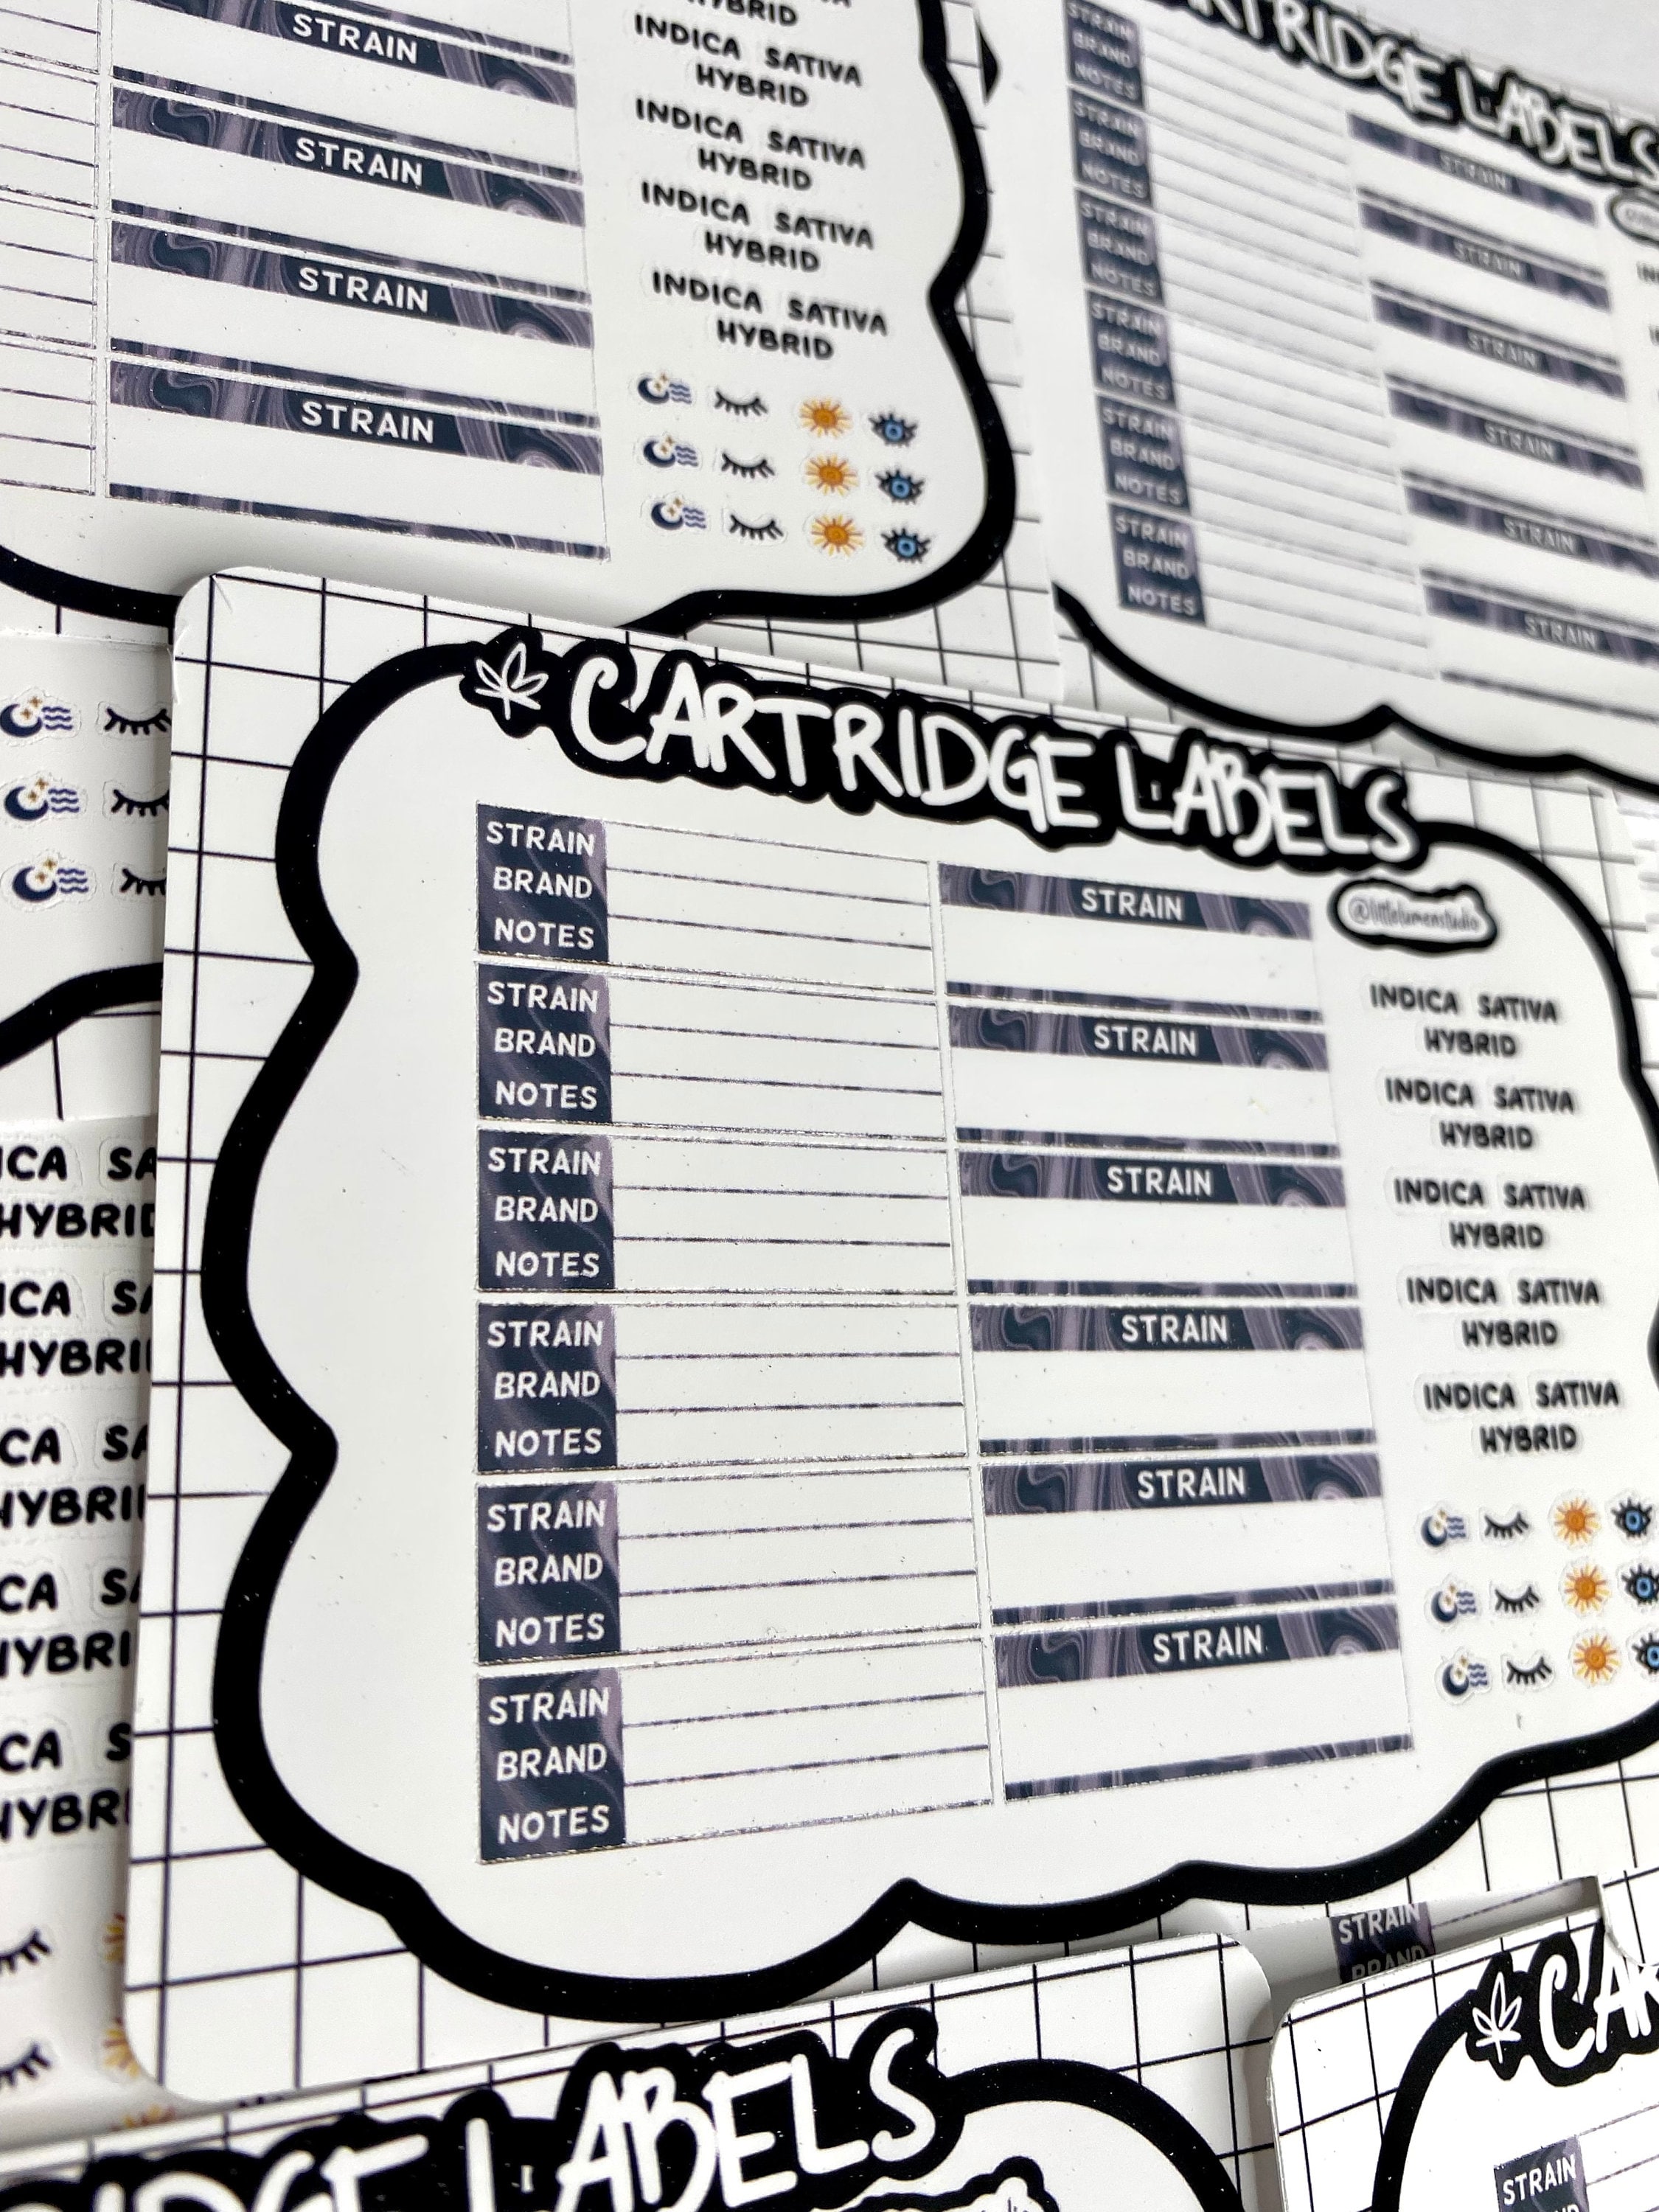 HYBRID
INDICA SATIVA
HYBRID
INDICA SATIVA
HYBRID
INDICA SATIVA
HYBRID
INDICA SATIVA
HYBRID
STRAIN
STRAIN
STRAIN
STRAIN
CARTRIDGE LABELS
STRAIN
BRAND
NOTES
STRAIN
BRAND
NOTES
STRAIN
BRAND
NOTES
STRAIN
BRAND
NOTES
STRAIN
BRAND
NOTES
STRAIN
BRAND
NOTES
STRAIN
STRAIN
STRAIN
STRAIN
STRAIN
STRAIN
CARTRIDGE LABELS
@littlelumenstudio
STRAIN
BRAND
NOTES
STRAIN
BRAND
NOTES
STRAIN
BRAND
NOTES
STRAIN
BRAND
NOTES
STRAIN
BRAND
NOTES
STRAIN
BRAND
NOTES
STRAIN
STRAIN
STRAIN
STRAIN
STRAIN
STRAIN
INDICA SATIVA
HYBRID
INDICA SATIVA
HYBRID
INDICA SATIVA
HYBRID
INDICA SATIVA
HYBRID
INDICA SATIVA
HYBRID
ICA SA
HYBRID
ICA SA
HYBRI
CA SA
HYBRI
CA SA
HYBRI
CA S
HYBR
STRAIN
BRAND
RIDGE LABELS
CAR
STRAIN